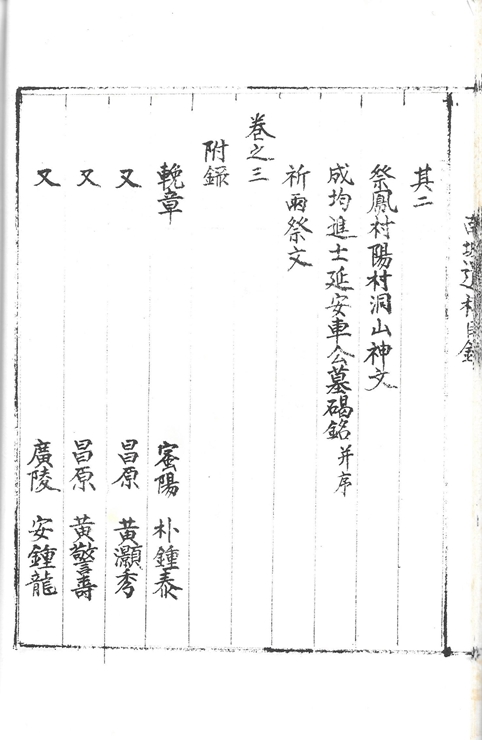 其二
祭鳳村陽村洞山神文
成均進士延安車公墓碣銘 并序
祈雨祭文
卷之三
附錄
輓章 密陽 朴鍾泰
又 昌原 黃灝秀
又 昌原 黃警善
又 廣陵 安鍾龍